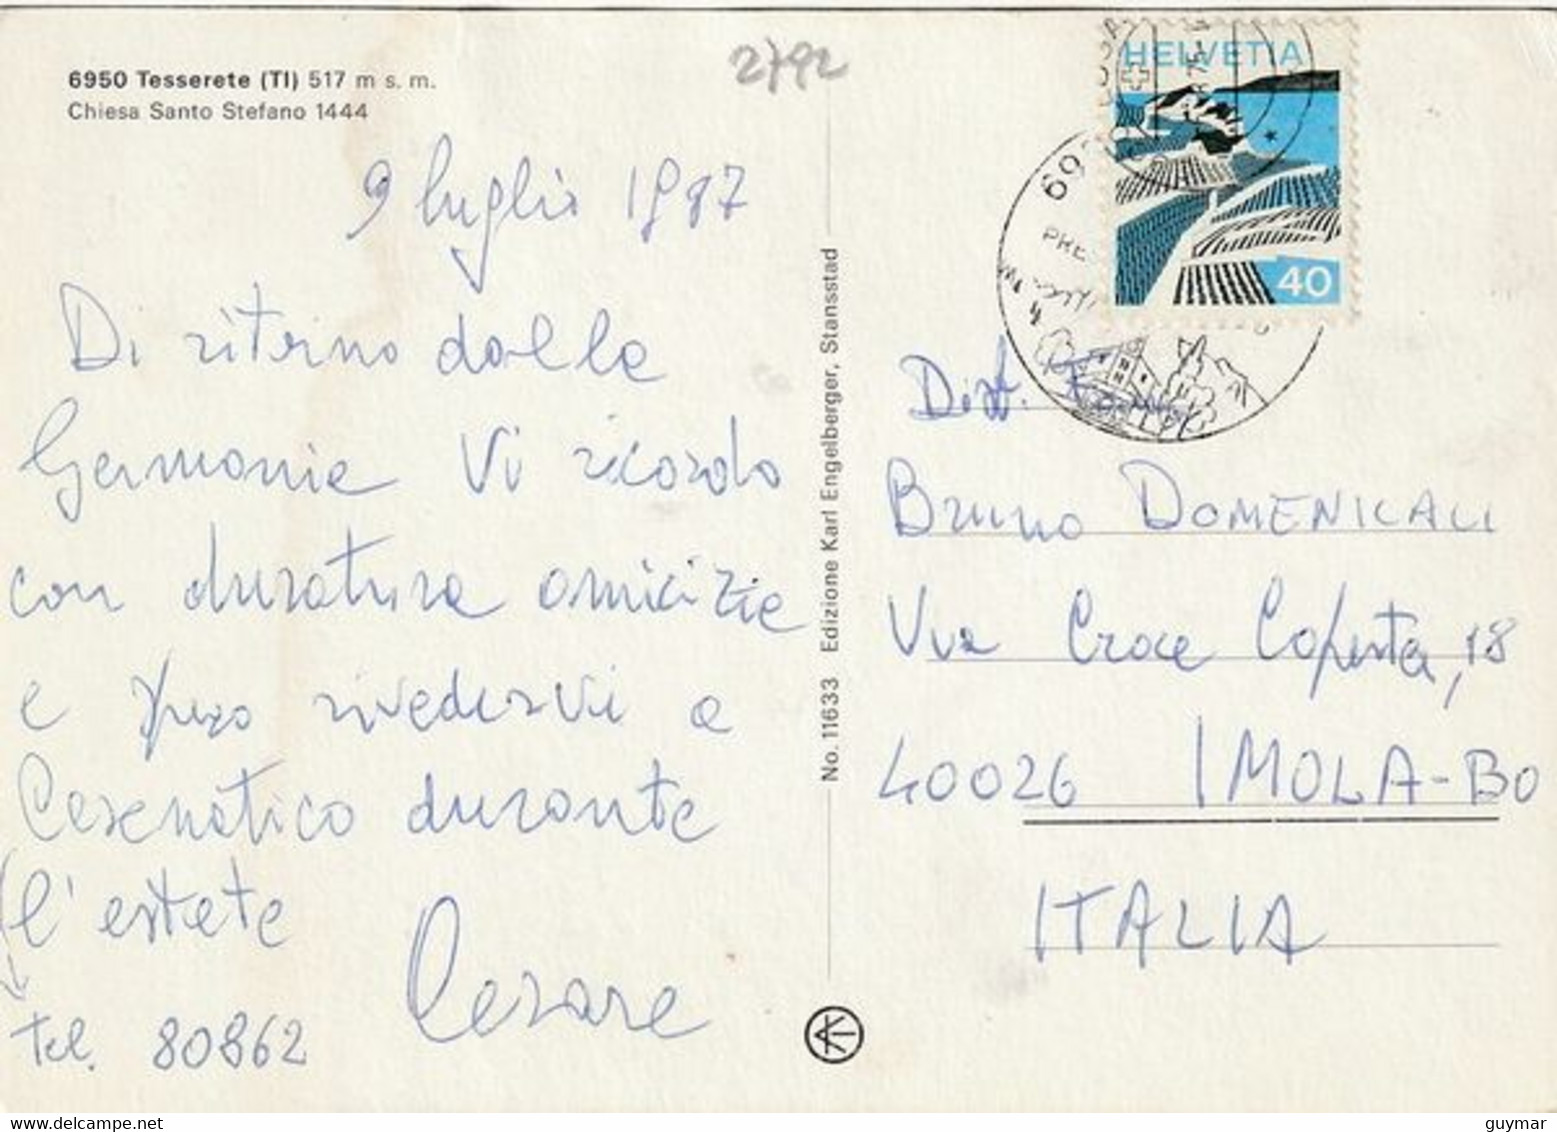 6950 Tesserete (TI) 517 m s. m.
Chiesa Santo Stefano 1444
2792
9 luglio 1987
Di ritorno dalla
Germania Vi ricordo
con duratura amicizia
e spero rivedervi a
Cesenatico durante
l'estate
Tel. 80862
Cesare
No. 11633 Edizione Karl Engelberger, Stansstad
HELVETIA
40
Bruno DOMENICALI
Via Croce Coperta, 18
40026 IMOLA-BO
ITALIA
guymar